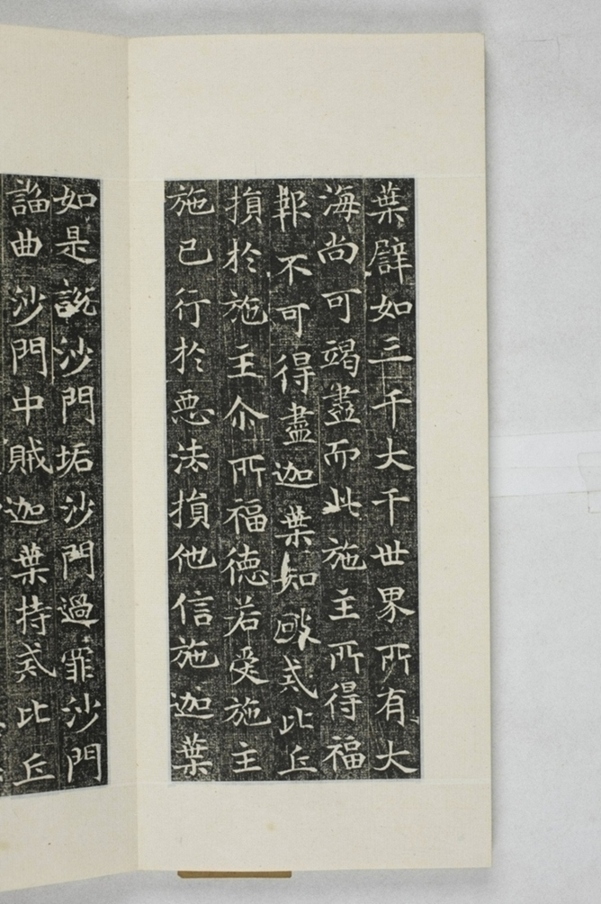 葉譬如三千大千世界所有大
海尚可竭盡而此施主所得福
報不可得盡迦葉知破戒比丘
損於施主尒所福德若受施主
施已行於惡法損他信施迦葉
如是說沙門垢沙門過罪沙門
謟曲沙門中賊迦葉持戒比丘